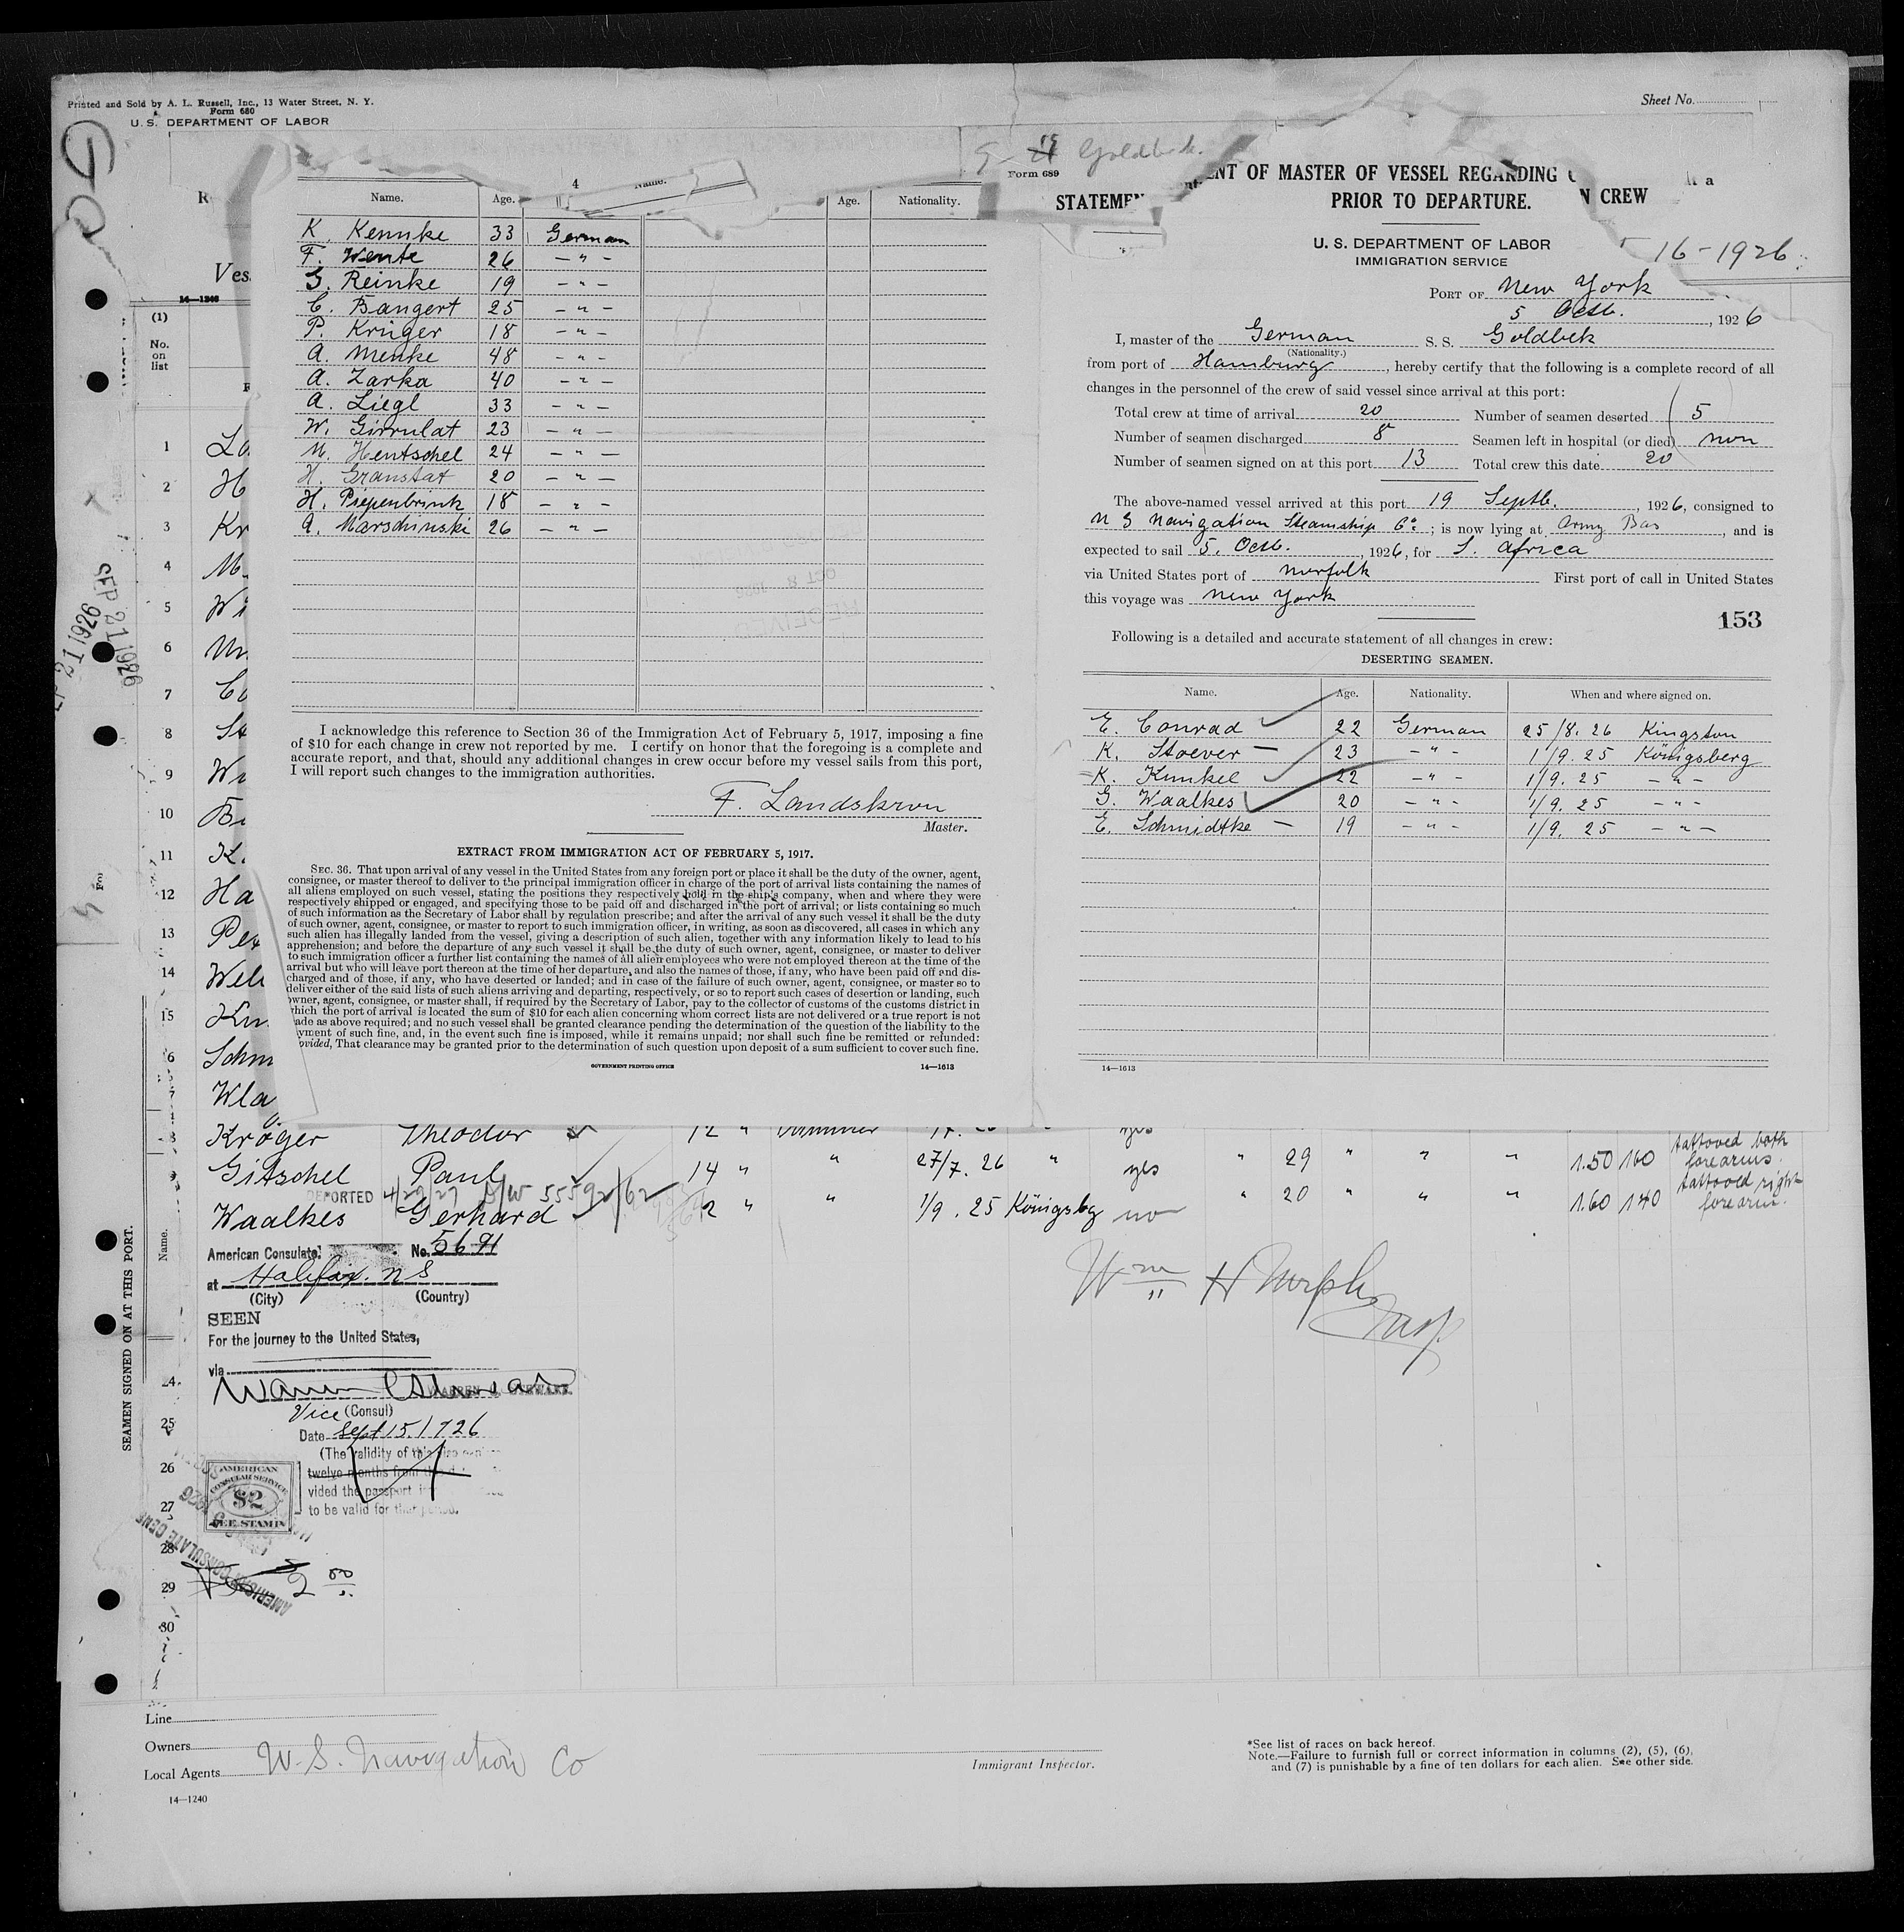 Printed and Sold by A. L. Russell, Inc., 13 Water Street, N. Y.
Form 680
U. S. DEPARTMENT OF LABOR
Sheet No.
Ves
14—1240
(1)
No.
on
list
4
Name.
Name. Age. Age. Nationality.
K. Kennke 33 German
F. Wente 26 — " —
G. Reinke 19 — " —
C. Bangert 25 — " —
P. Krüger 18 — " —
A. Menke 48 — " —
A. Zarka 40 — " —
A. Liegl 33 — " —
W. Girrulat 23 — " —
M. Hentschel 24 — " —
H. Granstat 20 — " —
H. Piepenbrink 18 — " —
A. Marschinski 26 — " —
RECEIVED
OCT 8 1926
I acknowledge this reference to Section 36 of the Immigration Act of February 5, 1917, imposing a fine
of $10 for each change in crew not reported by me. I certify on honor that the foregoing is a complete and
accurate report, and that, should any additional changes in crew occur before my vessel sails from this port,
I will report such changes to the immigration authorities.
F. Landskron
Master.
EXTRACT FROM IMMIGRATION ACT OF FEBRUARY 5, 1917.
SEC. 36. That upon arrival of any vessel in the United States from any foreign port or place it shall be the duty of the owner, agent,
consignee, or master thereof to deliver to the principal immigration officer in charge of the port of arrival lists containing the names of
all aliens employed on such vessel, stating the positions they respectively hold in the ship's company, when and where they were
respectively shipped or engaged, and specifying those to be paid off and discharged in the port of arrival; or lists containing so much
of such information as the Secretary of Labor shall by regulation prescribe; and after the arrival of any such vessel it shall be the duty
of such owner, agent, consignee, or master to report to such immigration officer, in writing, as soon as discovered, all cases in which any
such alien has illegally landed from the vessel, giving a description of such alien, together with any information likely to lead to his
apprehension; and before the departure of any such vessel it shall be the duty of such owner, agent, consignee, or master to deliver
to such immigration officer a further list containing the names of all alien employees who were not employed thereon at the time of the
arrival but who will leave port thereon at the time of her departure, and also the names of those, if any, who have been paid off and dis-
charged and of those, if any, who have deserted or landed; and in case of the failure of such owner, agent, consignee, or master so to
deliver either of the said lists of such aliens arriving and departing, respectively, or so to report such cases of desertion or landing, such
owner, agent, consignee, or master shall, if required by the Secretary of Labor, pay to the collector of customs of the customs district in
which the port of arrival is located the sum of $10 for each alien concerning whom correct lists are not delivered or a true report is not
ade as above required; and no such vessel shall be granted clearance pending the determination of the question of the liability to the
yment of such fine, and, in the event such fine is imposed, while it remains unpaid; nor shall such fine be remitted or refunded:
ovided, That clearance may be granted prior to the determination of such question upon deposit of a sum sufficient to cover such fine.
GOVERNMENT PRINTING OFFICE 14—1613
Goldbek
Form 689
STATEMEN ENT OF MASTER OF VESSEL REGARDING C N CREW
PRIOR TO DEPARTURE.
U. S. DEPARTMENT OF LABOR
IMMIGRATION SERVICE
16-1926
PORT OF New York
5 Octb., 1926
I, master of the German S. S. Goldbek
(Nationality.)
from port of Hamburg, hereby certify that the following is a complete record of all
changes in the personnel of the crew of said vessel since arrival at this port:
Total crew at time of arrival 20 Number of seamen deserted 5
Number of seamen discharged 8 Seamen left in hospital (or died) non
Number of seamen signed on at this port 13 Total crew this date 20
The above-named vessel arrived at this port 19 Septb., 1926, consigned to
U S Navigation Steamship Co; is now lying at Army Bas, and is
expected to sail 5. Octb., 1926, for S. Africa
via United States port of Norfolk First port of call in United States
this voyage was New York
153
Following is a detailed and accurate statement of all changes in crew:
DESERTING SEAMEN.
Name. Age. Nationality. When and where signed on.
E. Conrad 22 German 25/8. 26 Kingston
K. Stoever — 23 — " — 1/9. 25 Königsberg
K. Kunkel 22 — " — 1/9. 25 — " —
G. Waalkes 20 — " — 1/9. 25 — " —
E. Schmidtke — 19 — " — 1/9. 25 — " —
14—1613
1
2 H
3 Kr
4 M
5 Wi
6
7
8 St
9
10
11 K.
12 Ha
13 Pet
14
15
6 Schm
7 Wla
SEP 21 1926
SEP 21 1926
Kröger Theodor 12 " yes
Gitschel Paul 14 " " 27/7. 26 " yes " 29 " " " 1.50 160 tattooed both forearms.
DEPORTED 4/29/27
Waalkes Gerhard 2 " " 1/9. 25 Königsbg no " 20 " " " 1.60 140 tattooed right forearm.
American Consulate No. 5691
at Halifax. N S
(City) (Country)
SEEN
For the journey to the United States,
via
WARREN C. STEWART
Vice (Consul)
Date Sept 15. 1926
(The validity of this
twelve months from the
vided the passport
to be valid for that period.
AMERICAN
CONSULAR SERVICE
$2
FEE STAMP
AMERICAN CONSULATE GENE
24
25
26
27
28
29
30
SEAMEN SIGNED ON AT THIS PORT.
Name.
Wm H Murphy
Insp.
Line
Owners
Local Agents U. S. Navigation Co
Immigrant Inspector.
14—1240
*See list of races on back hereof.
Note.—Failure to furnish full or correct information in columns (2), (5), (6),
and (7) is punishable by a fine of ten dollars for each alien. See other side.